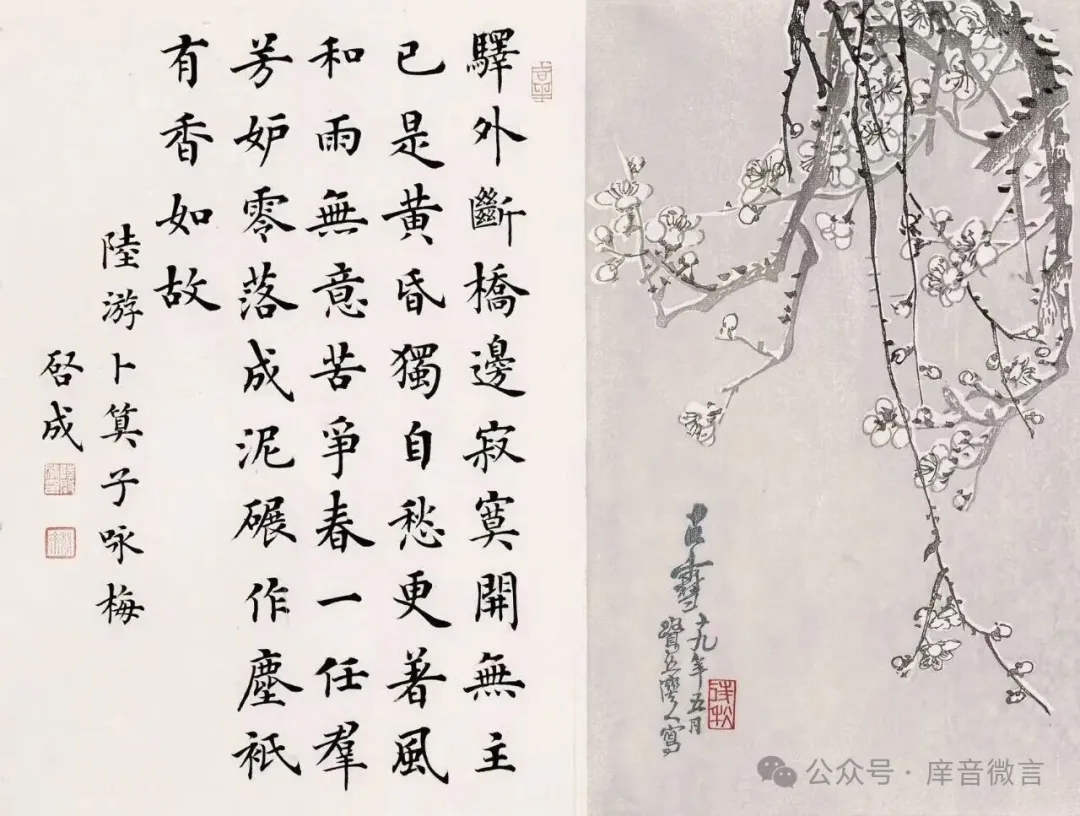 驛外斷橋邊寂寞開無主
已是黃昏獨自愁更著風
和雨無意苦爭春一任羣
芳妒零落成泥碾作塵衹
有香如故
陸游卜算子咏梅
啓成
香雪
十九年五月
寫
公众号·庠音微言